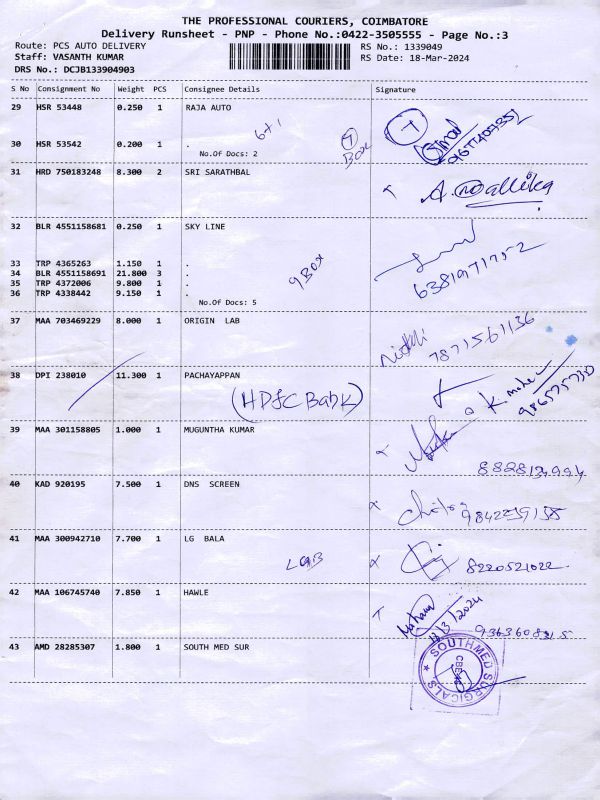 THE PROFESSIONAL COURIERS, COIMBATORE
Delivery Runsheet - PNP - Phone No.:0422-3505555 - Page No.:3
Route: PCS AUTO DELIVERY
RS No.: 1339049
Staff: VASANTH KUMAR
RS Date: 18-Mar-2024
DRS No.: DCJB133904903
S No Consignment No Weight PCS Consignee Details Signature
29 HSR 53448 0.250 1 RAJA AUTO
6+1
7
BOX
7
30 HSR 53542 0.200 1 .
No.Of Docs: 2
31 HRD 750183248 8.300 2 SRI SARATHBAL
A. Mallika
32 BLR 4551158681 0.250 1 SKY LINE
33 TRP 4365263 1.150 1 .
34 BLR 4551158691 21.800 3 .
35 TRP 4372006 9.800 1 .
36 TRP 4338442 9.150 1 .
9 BOX
6381971752
No.Of Docs: 5
37 MAA 703469229 8.000 1 ORIGIN LAB
7871561136
38 DPI 238010 11.300 1 PACHAYAPPAN
(HDFC Bank)
39 MAA 301158805 1.000 1 MUGUNTHA KUMAR
40 KAD 920195 7.500 1 DNS SCREEN
41 MAA 300942710 7.700 1 LG BALA
8220521022
42 MAA 106745740 7.850 1 HAWLE
18/3/2024
43 AMD 28285307 1.800 1 SOUTH MED SUR
SOUTHMED SURGICALS